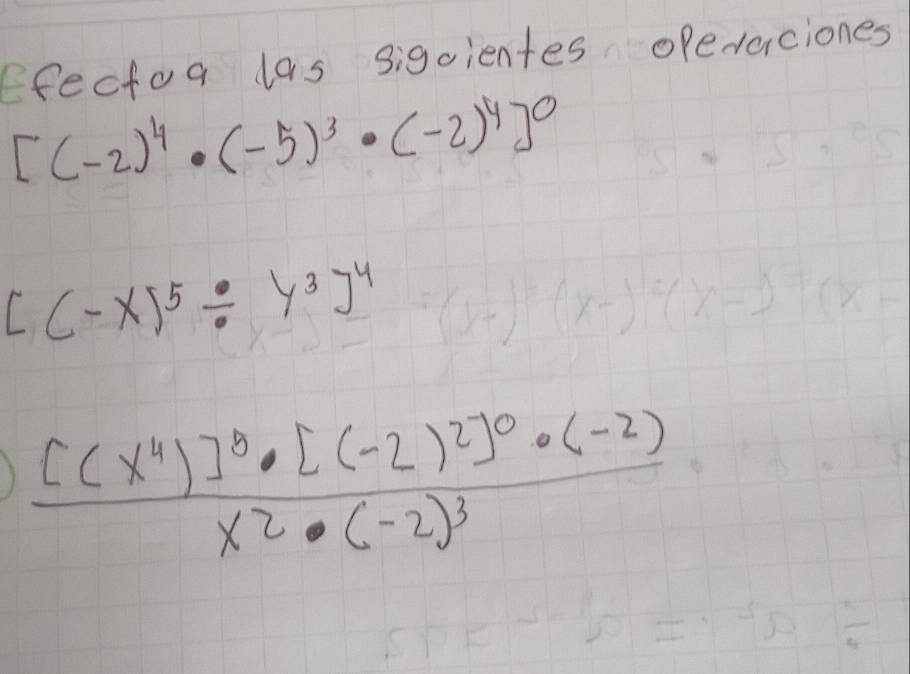 Efectua las siguientes operaciones
[(-2)⁴ • (-5)³ • (-2)⁴]⁰
[(-x)⁵ ÷ y³]⁴
) [(x⁴)]⁵ • [(-2)²]⁰ • (-2)
x² • (-2)³